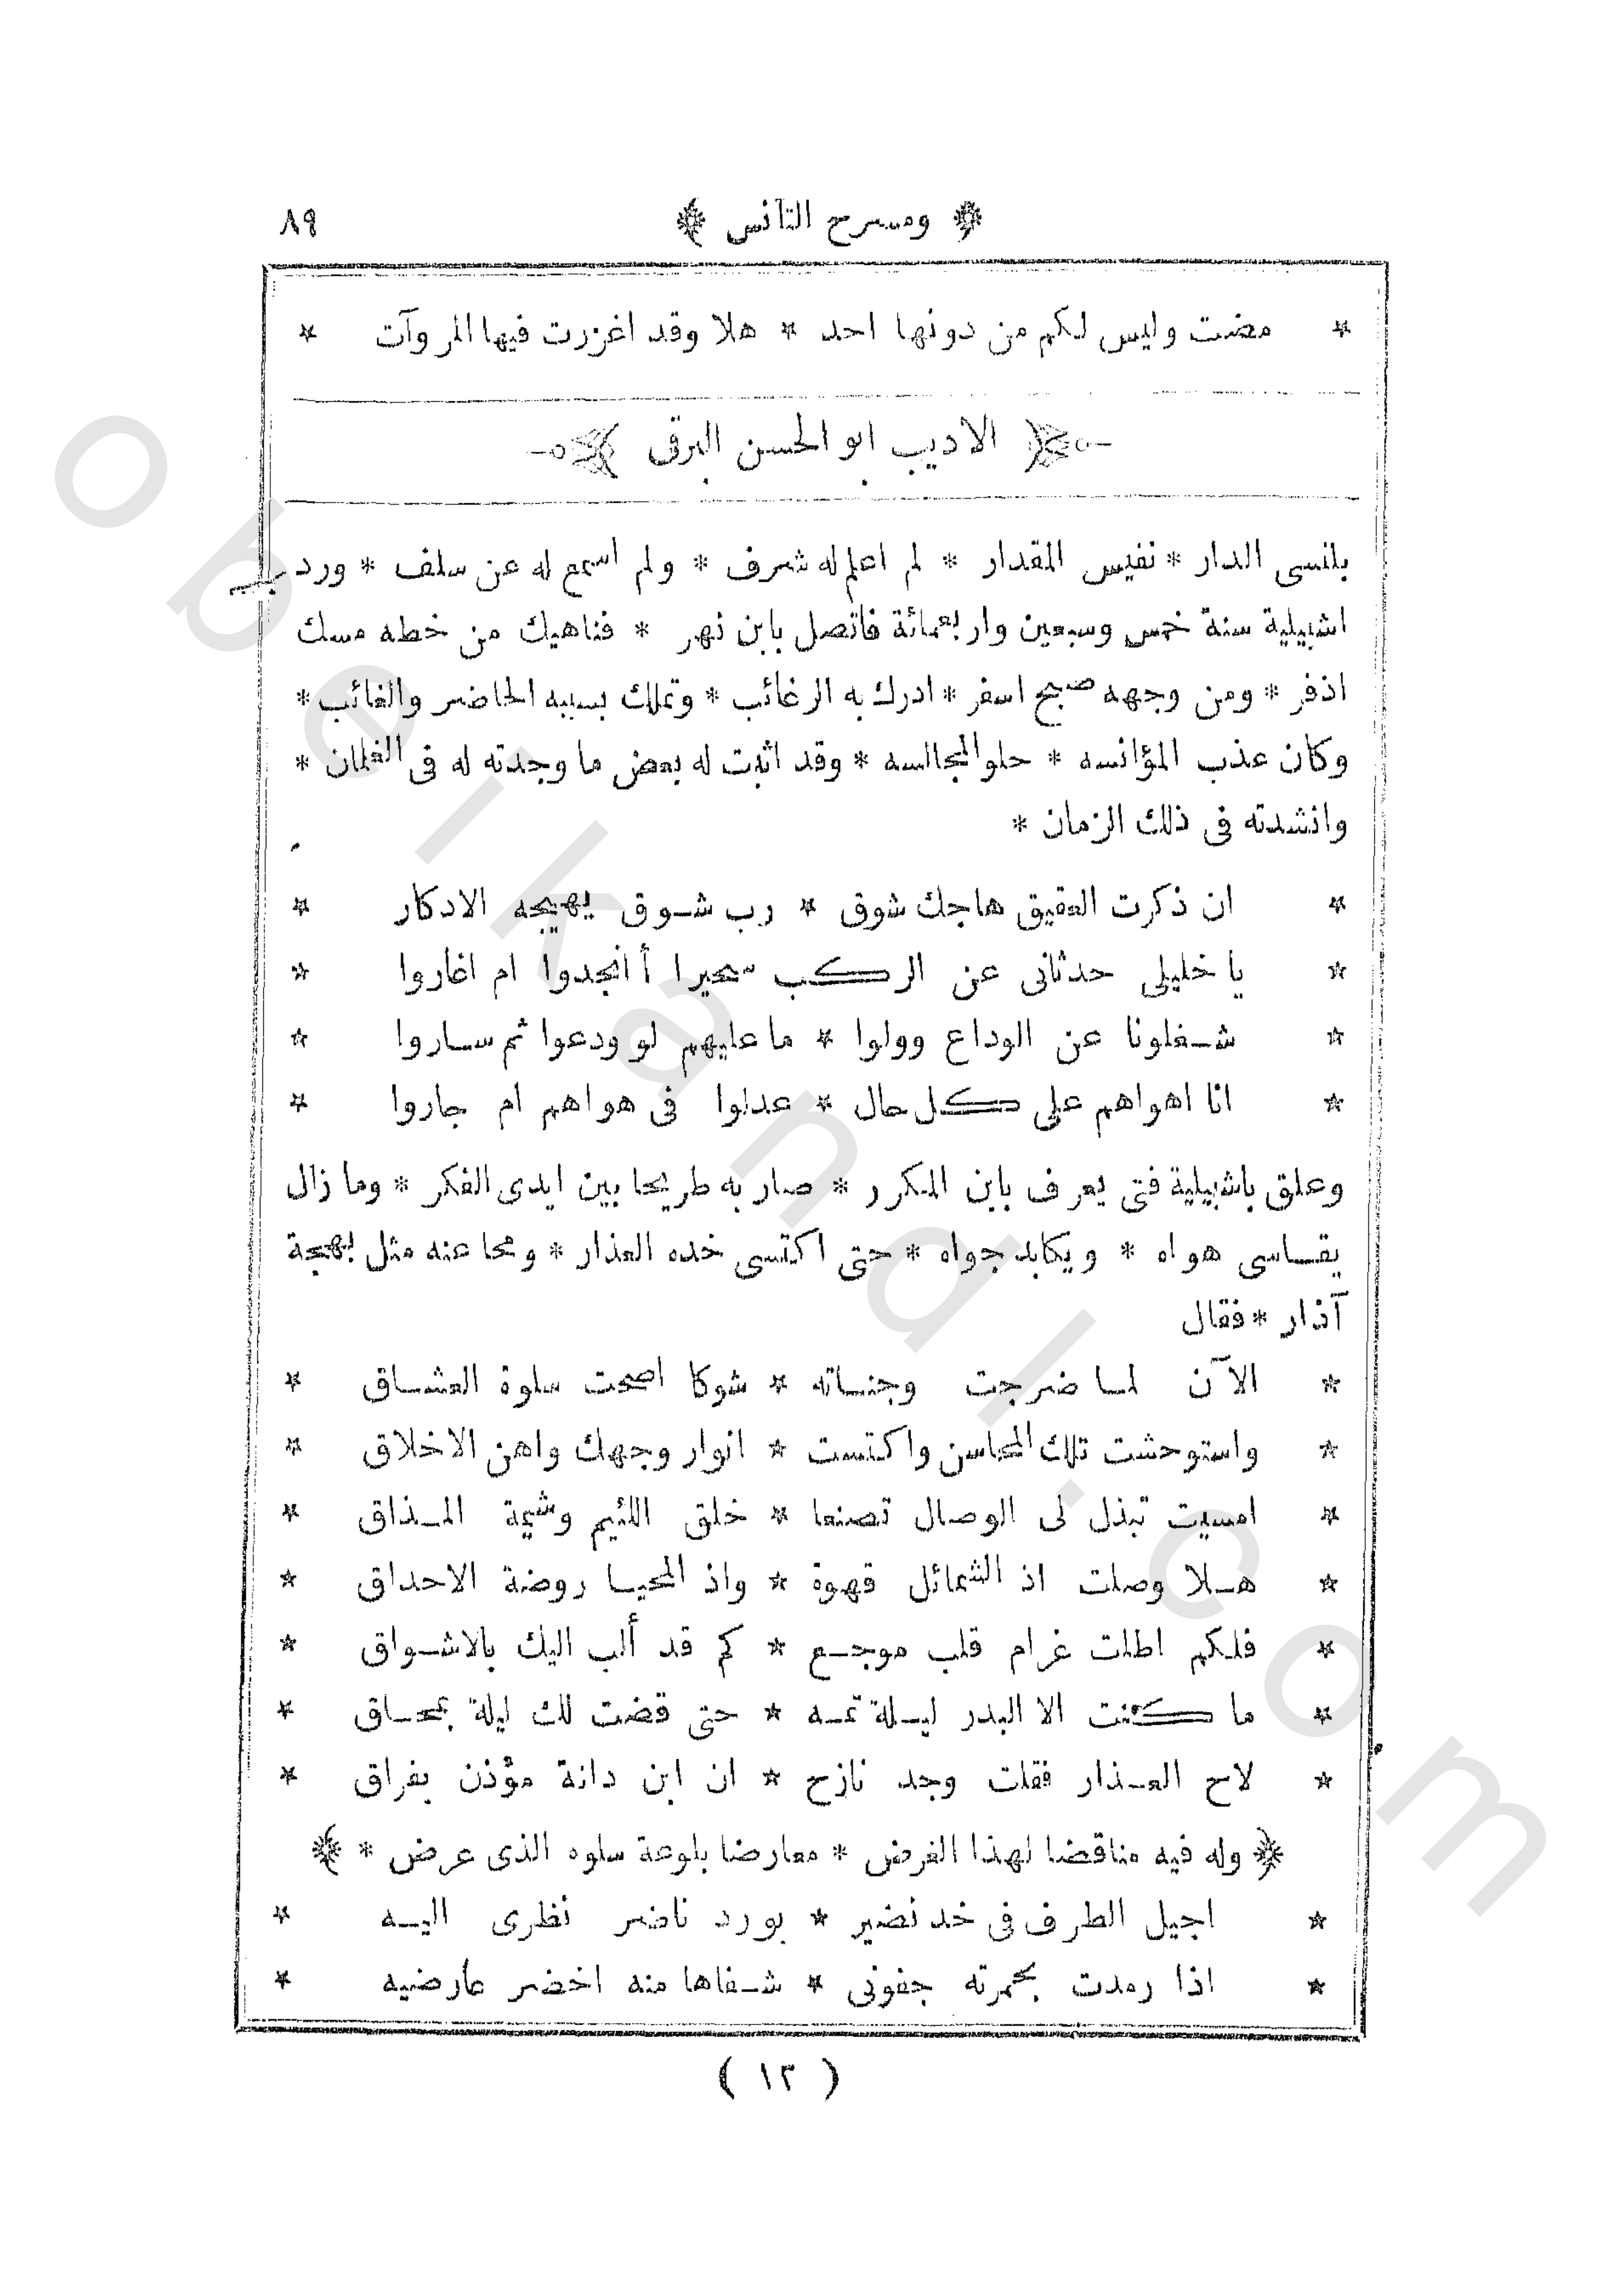 ﴿ ومسرح التآنس ﴾ ٨٩
* مضت وليس لكم من دونها احد * هلا وقد اغزرت فيها المروآت *
﴿ الاديب ابو الحسن البرقى ﴾
بلنسى الدار * نفيس المقدار * لم اعلم له شرف * ولم اسمع له عن سلف * ورد
اشبيلية سنة خمس وسبعين واربعمائة فاتصل بابن زهر * فناهيك من خطه مسك
اذفر * ومن وجهه صبح اسفر * ادرك به الرغائب * وتملك بسببه الحاضر والغائب *
وكان عذب المؤانسه * حلو المجالسه * وقد اثبت له بعض ما وجدته له فى الغلمان *
وانشدته فى ذلك الزمان *
* ان ذكرت العقيق هاجك شوق * رب شـوق يهيجه الادكار *
* يا خليلى حدثانى عن الركب سحيرا أ انجدوا ام اغاروا *
* شـغلونا عن الوداع وولوا * ما عليهم لو ودعوا ثم ساروا *
* انا اهواهم على كل حال * عدلوا فى هواهم ام جاروا *
وعلق باشبيلية فتى يعرف بابن المكرر * صار به طريحا بين ايدى الفكر * وما زال
يقـاسى هواه * ويكابد جواه * حتى اكتسى خده العذار * ومحا عنه مثل بهجة
آذار * فقال
* الآن لما ضرجت وجنـاته * شوكا اضحت سلوة العشـاق *
* واستوحشت تلك المحاسن واكتست * انوار وجهك واهن الاخلاق *
* امسيت تبذل لى الوصال تصنعا * خلق اللئيم وشيمة المـذاق *
* هـلا وصلت اذ الشمائل قهوة * واذ المحيـا روضة الاحداق *
* فلكم اطلت غرام قلب موجـع * كم قد ألب اليك بالاشـواق *
* ما كنت الا البدر ليـلة تمـه * حتى قضت لك ليلة بمحـاق *
* لاح العـذار فقلت وجد نازح * ان ابن دانة مؤذن بفراق *
﴿ وله فيه مناقضا لهذا الغرض * معارضا بلوعة سلوه الذى عرض * ﴾
* اجيل الطرف فى خد نضير * بورد ناضر نظرى اليـه *
* اذا رمدت بحمرته جفونى * شـفاها منه اخضر عارضيه *
( ١٢ )
obeikandl.com